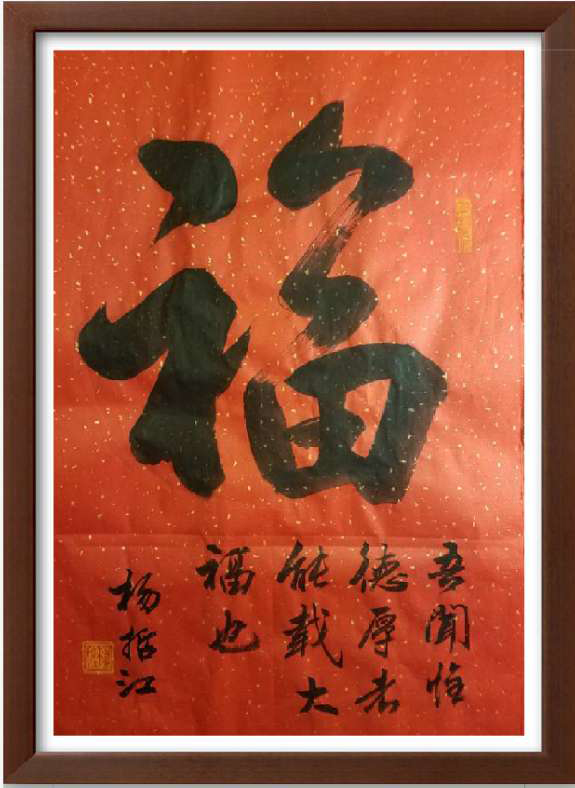 福
吾聞惟
德厚者
能載大
福也
杨振江